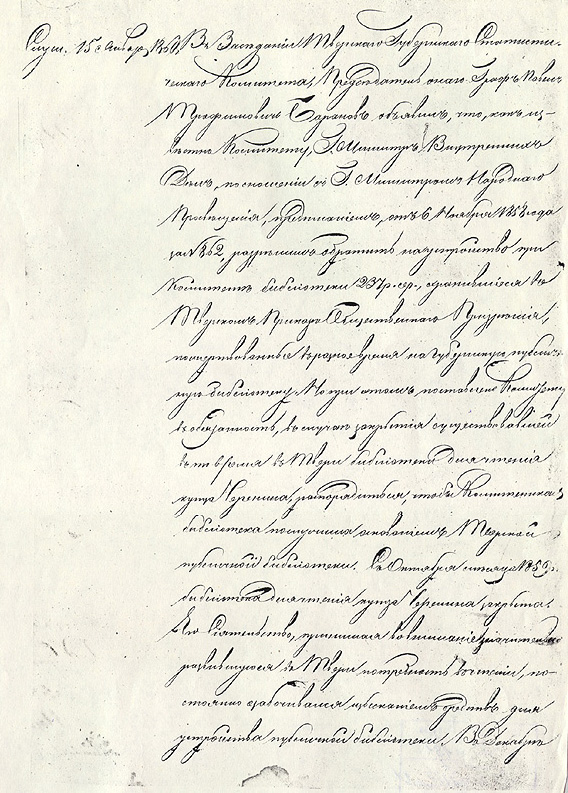 Слуш. 15го Января 1860, Въ Заседанiи Тверскаго Губернскаго Статисти-
ческаго Комитета, Председатель онаго Графъ Павелъ
Трофимовичъ Барановъ объявилъ, что, какъ из-
вестно Комитету, Г. Министръ Внутреннихъ
Делъ, по сношенiи съ Г. Министромъ Народнаго
Просвещенiя, предписанiемъ, отъ 6 Ноября 1858 года
за № 262, разрешилъ обратить на устройство при
Комитете библiотеки 237 р. сер., хранившiеся въ
Тверскомъ Приказе Общественнаго Призренiя,
пожертвованные въ разное время на Губернскую публич-
ную библiотеку. Но при этомъ поставлено Комитету
въ обязанность, въ случае закрытiя существовавшей
въ то время въ Твери библiотеки для чтенiя
купца Черенина, распорядиться, чтобы Комитетская
библiотека послужила основанiемъ Тверской
публичной библiотеки. Съ Октября месяца 1859 г.
библiотека для чтенiя купца Черенина закрыта.
Его Сiятельство, принимая во вниманiе значительно
развившуюся въ Твери потребность въ чтенiи, по-
стоянно озабочивался изысканiемъ средствъ для
устройства публичной библiотеки. Въ Декабре